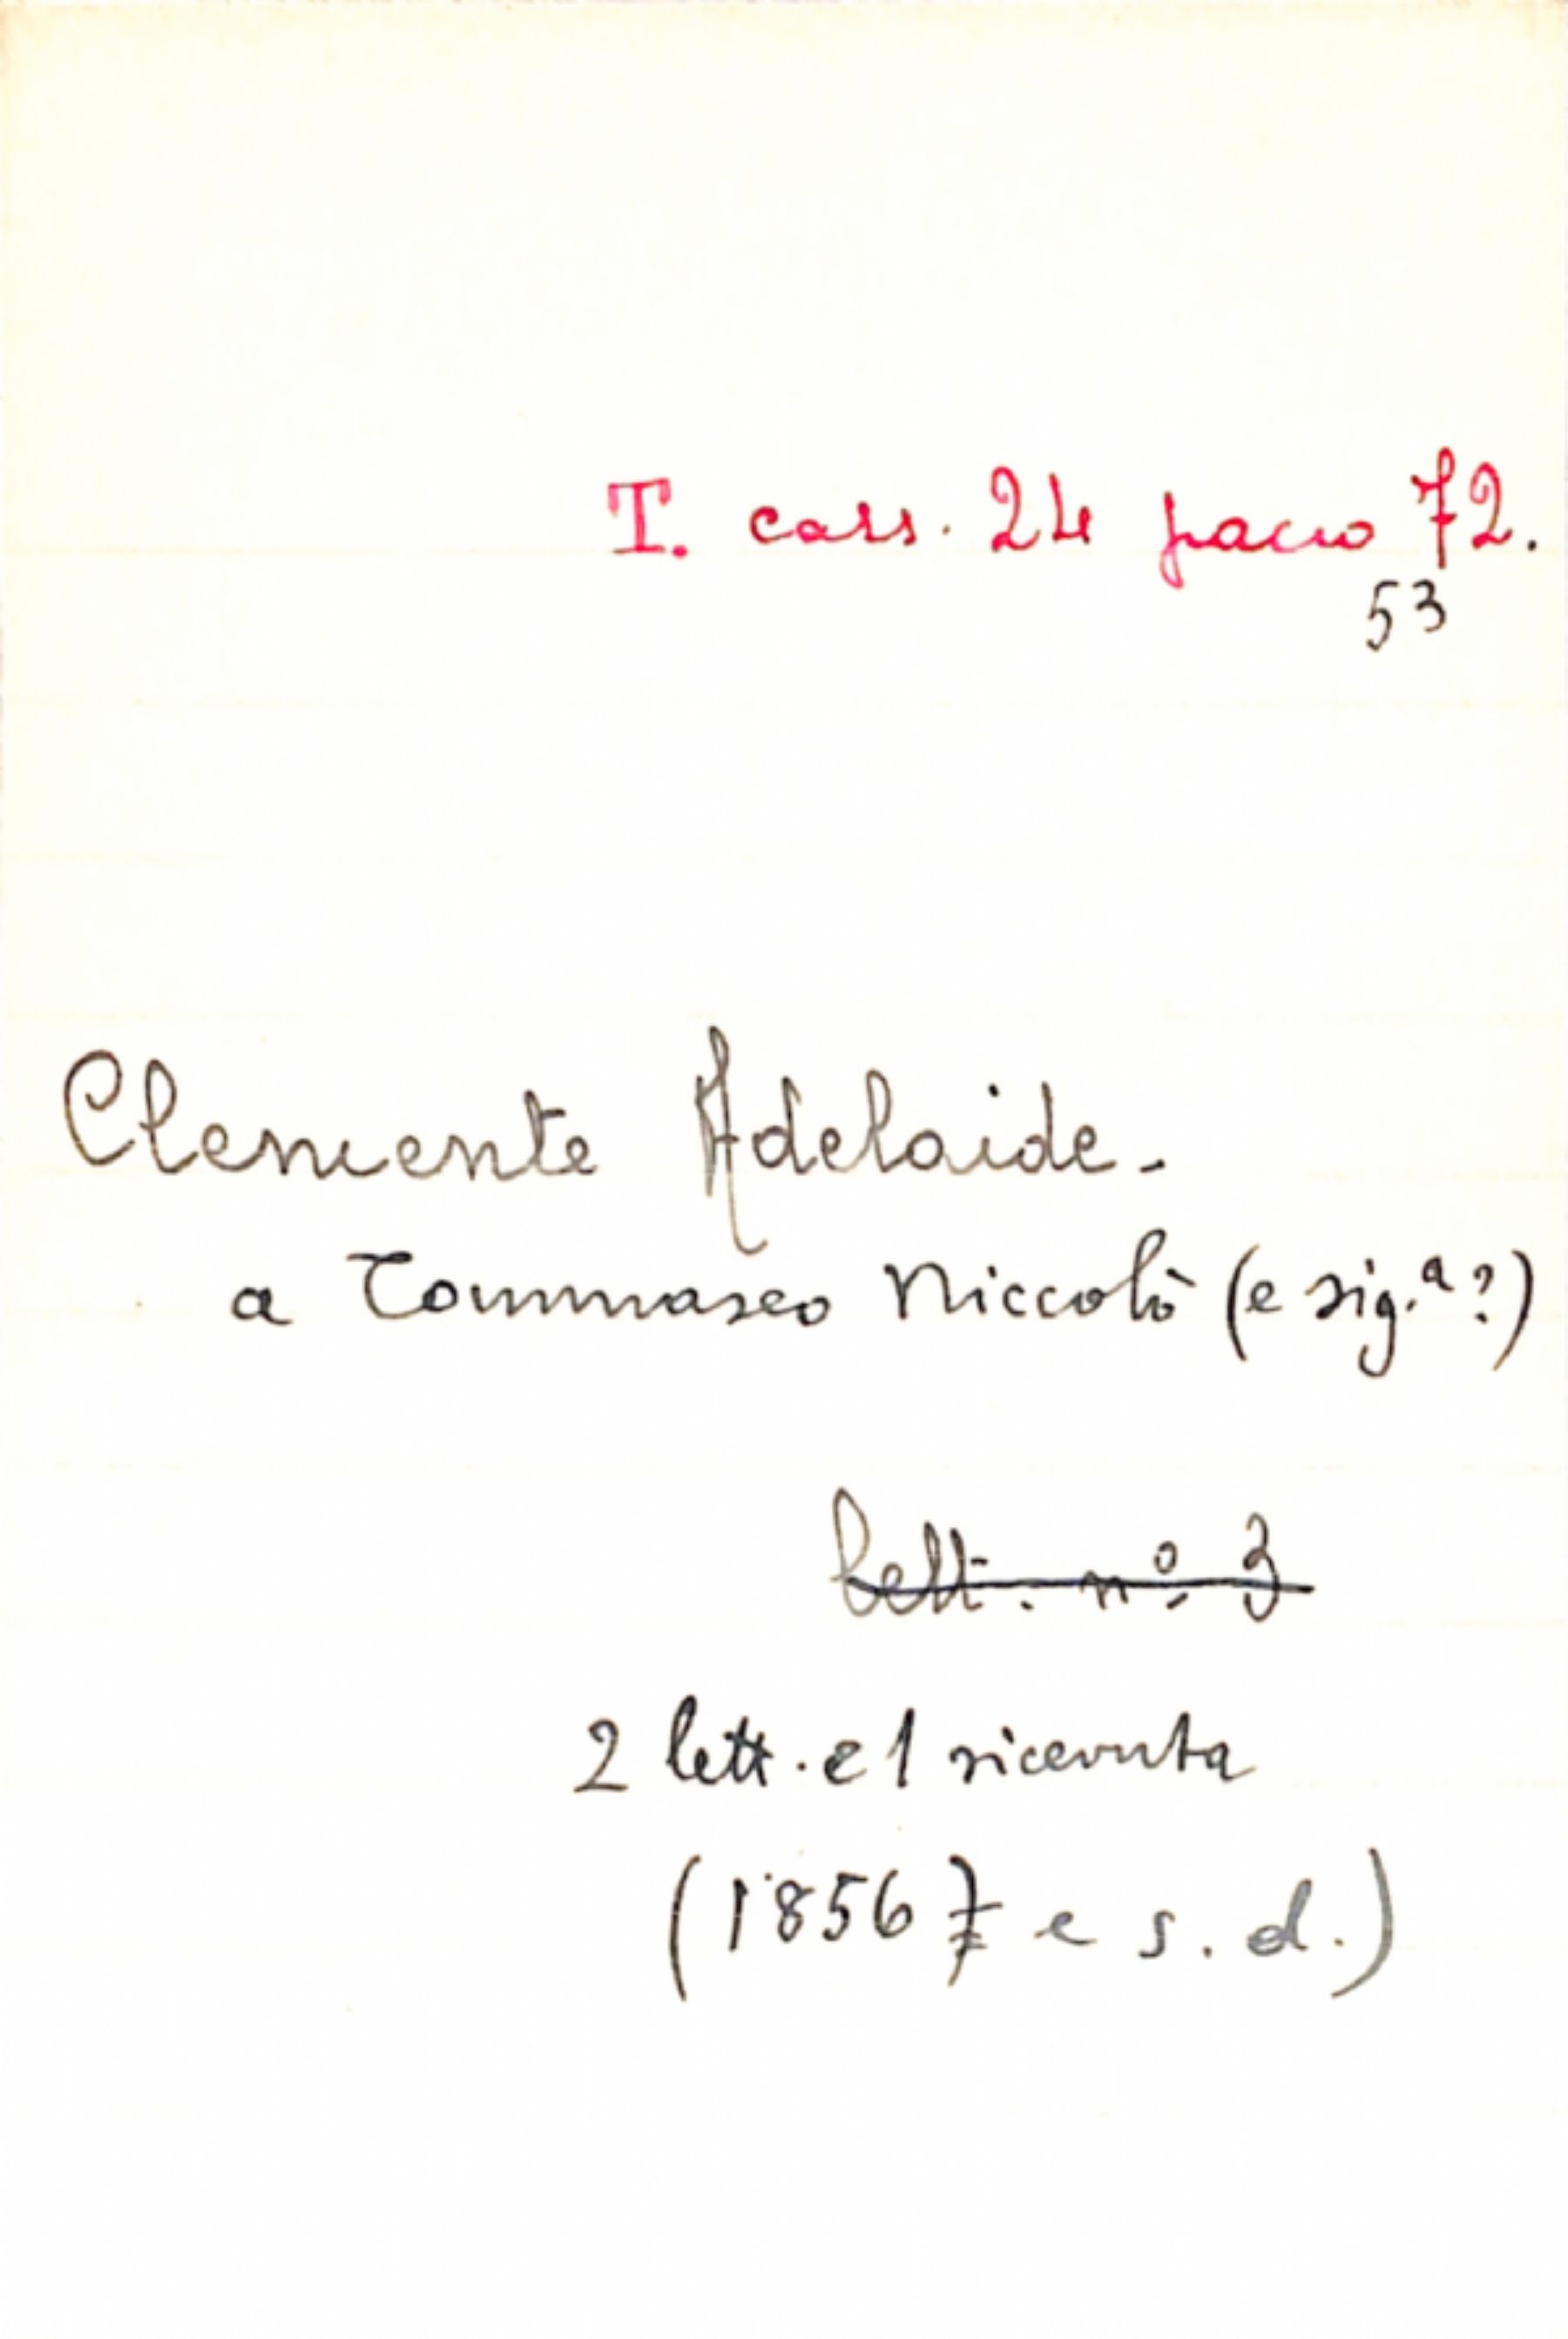 T. cass. 24 pacco 72.
53
Clemente Adelaide.
a Tommaseo Niccolò (e sig.ª ?)
Lett. nº 3
2 lett. e 1 ricevuta
(1856 e s. d.)